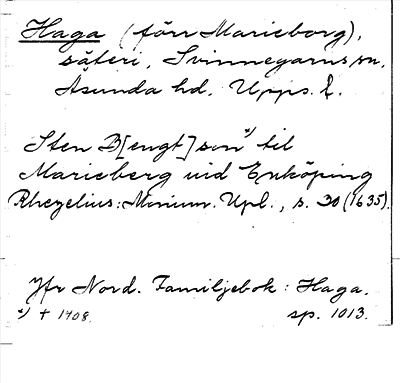 Haga (förr Marieborg),
säteri, Svinnegarns sn,
Åsunda hd. Upps. l.
Sten B[engt]son*) til
Marieberg vid Enköping
Rhezelius: Monum. Upl., s. 30 (1635).
Jfr Nord. Familjebok: Haga.
*) † 1408. sp. 1013.